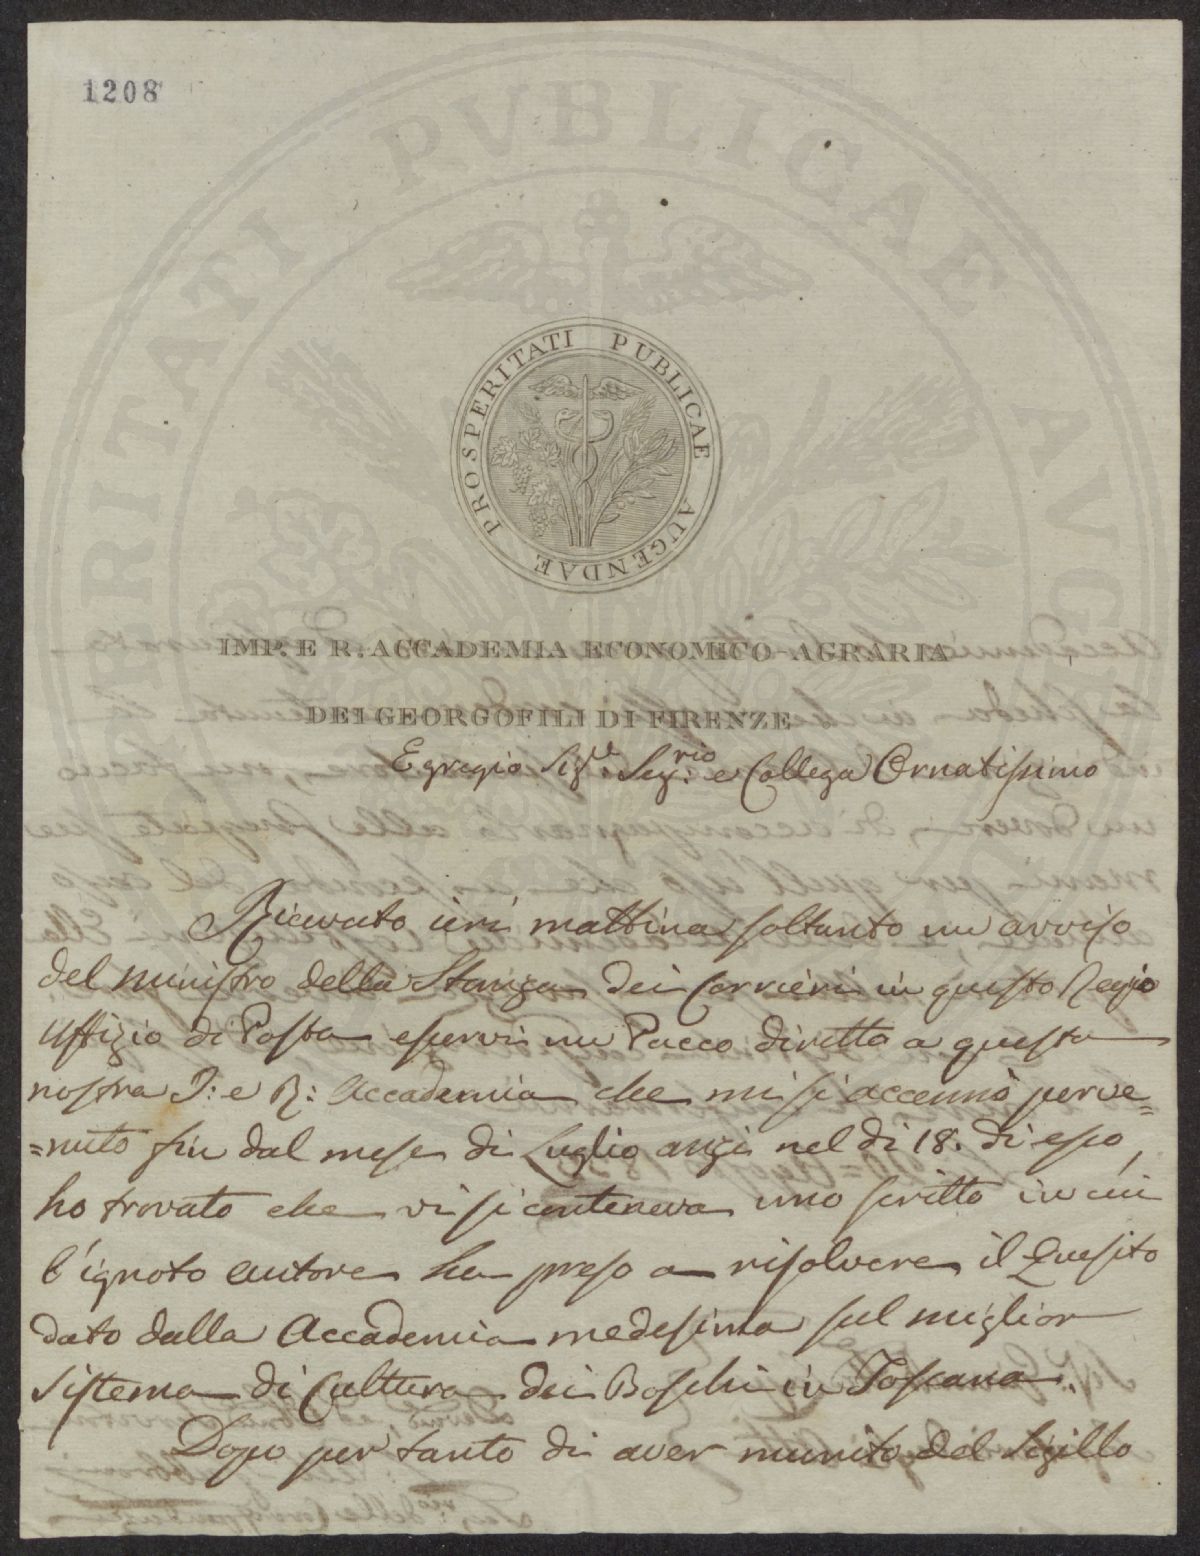 1208
PROSPERITATI PUBLICAE AUGENDAE
IMP. E R. ACCADEMIA ECONOMICO-AGRARIA
DEI GEORGOFILI DI FIRENZE
Egregio Sig.re Seg.rio e Collega Ornatissimo
Ricevuto ieri mattina soltanto un avviso
del Ministro della Stanza dei Corrieri in questo Regio
Uffizio di Posta esservi un Pacco diretto a questa
nostra I: e R: Accademia che mi si accennò perve=
=nuto fin dal mese di Luglio anzi nel dì 18. di esso,
ho trovato che vi si conteneva uno scritto in cui
l'ignoto autore ha preso a risolvere il Quesito
dato dalla Accademia medesima sul miglior
sistema di Cultura dei Boschi in Toscana.
Dopo per tanto di aver munito del Sigillo